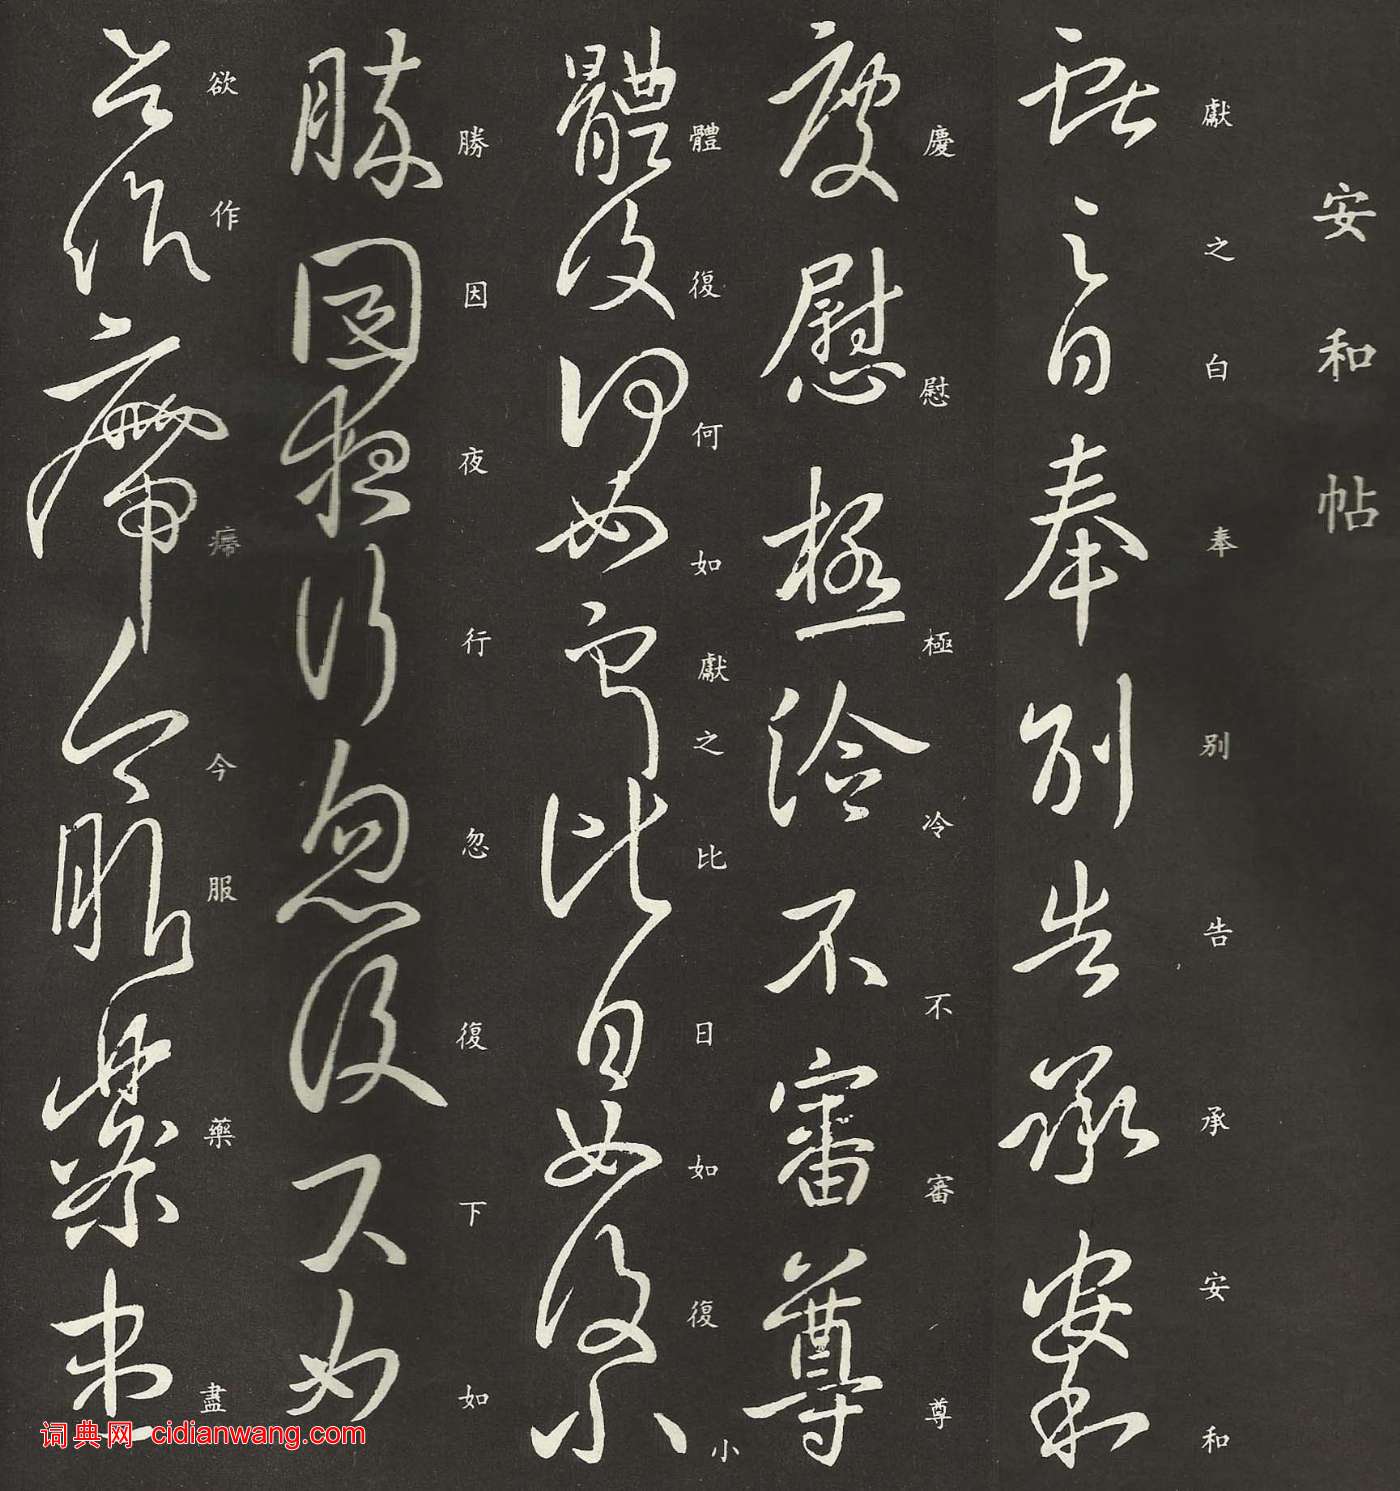 安和帖
獻之白奉别告承安和
慶慰極冷不審尊
體復何如獻之比日如復小
勝因夜行忽復下如
欲作㿃今服藥盡
词典网 cidianwang.com